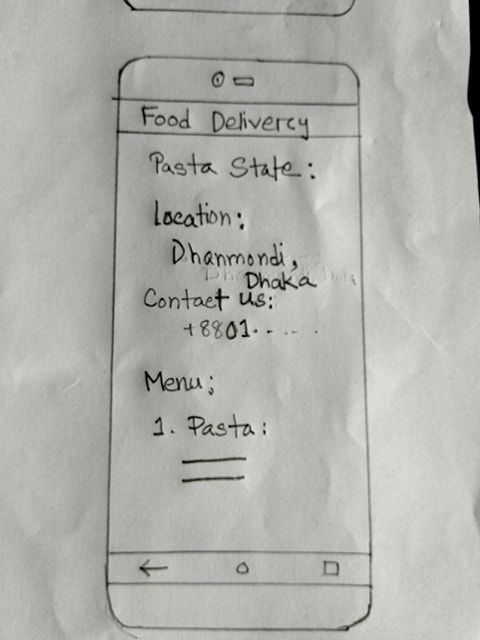 Food Delivercy
Pasta State:
Location:
Dhanmondi,
Dhaka
Contact us:
+8801.....
Menu:
1. Pasta: